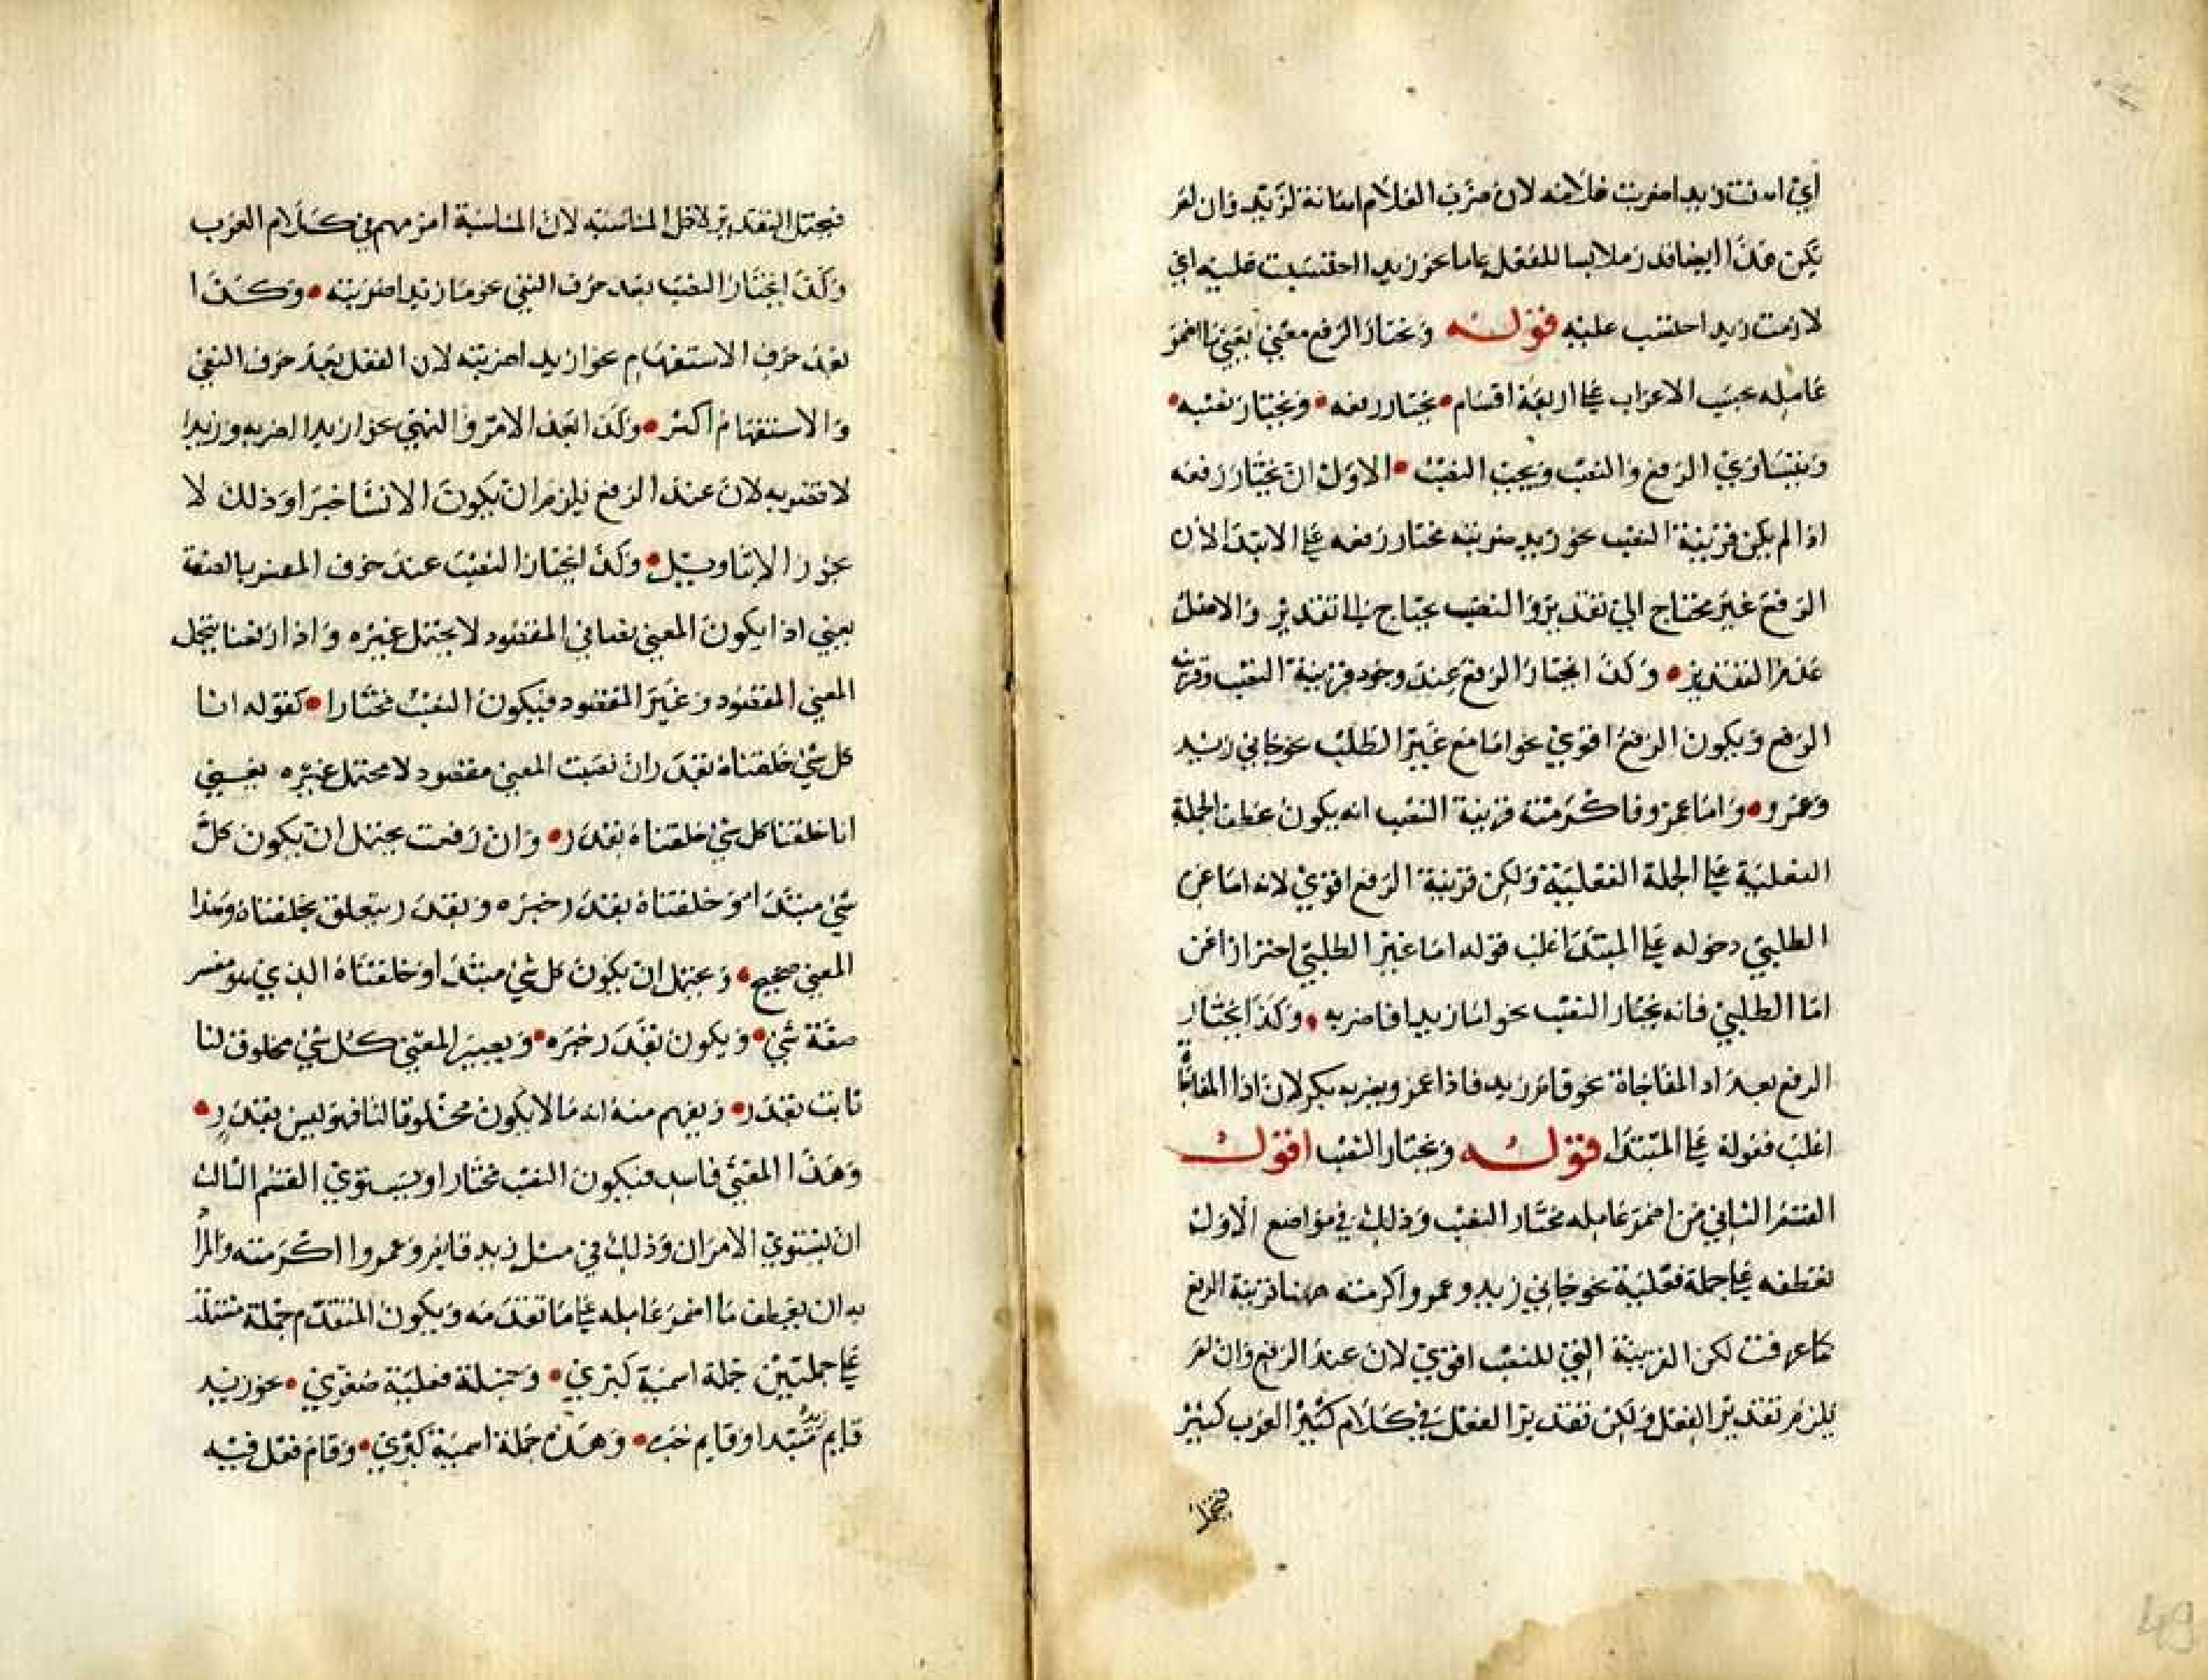 اي اهنت زيدا ضربت غلامه لان ضرب الغلام اهانة لزيد وان لم
يكن هذا ايضا فقدر ملابسا للفعل عاما نحو زيدا احتسبت عليه اي
لازمت زيدا حبست عليه قوله ويختار الرفع معني يعني ما اضمر
عامله بحسب الاعراب علي اربعة اقسام يختار رفعه ويختار نصبه
ويتساوي الرفع والنصب ويجب النصب الاول ان يختار رفعه
اذا لم يكن قرينة النصب نحو زيد ضربته يختار رفعه علي الابتدا لان
الرفع غير محتاج الي تقدير والنصب يحتاج الي تقدير والاصل
عدم التقدير وكذا يختار الرفع عند وجود قرينة النصب وقرينة
الرفع ويكون الرفع اقوي نحو اما مع غير الطلب نحو جاني زيد
وعمرو واما عمرو فاكرمته قرينة النصب انه يكون عطف الجملة
الفعلية علي الجملة الفعلية ولكن قرينة الرفع اقوي لانه اما غير
الطلبي دخوله علي المبتدا اغلب قوله اما غير الطلبي احترازا عن
اما الطلبي فانه يختار النصب نحو اما زيدا فاضربه وكذا يختار
الرفع بعد اذ المفاجاة نحو قام زيد فاذا عمرو يضربه بكر لان اذا المفاجاة
اغلب دخوله علي المبتدا قوله ويختار النصب اقول
القسم الثاني من اضمر عامله مختار النصب وذلك في مواضع الاول
لعطفه علي جملة فعلية نحو جاني زيد وعمروا اكرمته ههنا قرينة الرفع
كما عرفت لكن القرينة التي للنصب اقوي لان عند الرفع وان لم
يلزم تقدير الفعل ولكن تقدير الفعل في كلام كثير العرب كثير
فيحتمل
فيحتمل التقدير لاجل المناسبة لان المناسبة امر مهم في كلام العرب
وكذا يختار النصب بعد حرف النفي نحو ما زيدا ضربته وكذا
بعد حرف الاستفهام نحو ازيدا ضربته لان الفعل بعد حرف النفي
والاستفهام اكثر وكذا بعد الامر والنهي نحو ازيدا اضربه وزيدا
لا تضربه لان عند الرفع يلزم ان يكون الانشا خبرا وذلك لا
يجوز الا بتاويل وكذا يختار النصب عند خوف المفسر بالصفة
يعني اذا يكون المعني نصا في المقصود لا يحتمل غيره واذا رفعنا يحتمل
المعني المقصود وغير المقصود فيكون النصب مختارا كقوله انا
كل شي خلقناه بقدر ان نصبت المعني مقصود لا محتمل غيره يعني
انا خلقنا كل شي خلقناه بقدر وان رفعت يحتمل ان يكون كل
شي مبتدا وخلقناه بقدر خبره وبقدر يتعلق بخلقناه وهذا
المعني صحيح ويحتمل ان يكون كل شي مبتدا وخلقناه الذي هو مفسر
صفة شي ويكون بقدر خبره ويصير المعني كل شي مخلوق لنا
ثابت بقدر ويفهم منه انه ما لا يكون مخلوقا لنا فهو ليس بقدر
وهذا المعني فاسد فيكون النصب مختارا ويستوي القسم الثالث
ان يستوي الامران وذلك في مثل زيد قام وعمروا اكرمته والمراد
به ان يعطف ما اضمر عامله علي ما تقدمه ويكون المتقدم جملة مشتملة
علي جملتين جملة اسمية كبري وجملة فعلية صغري نحو زيد
قايم زيد مبتدا وقايم خبر وهذه جملة اسمية كبري وقام فعل فيه
49